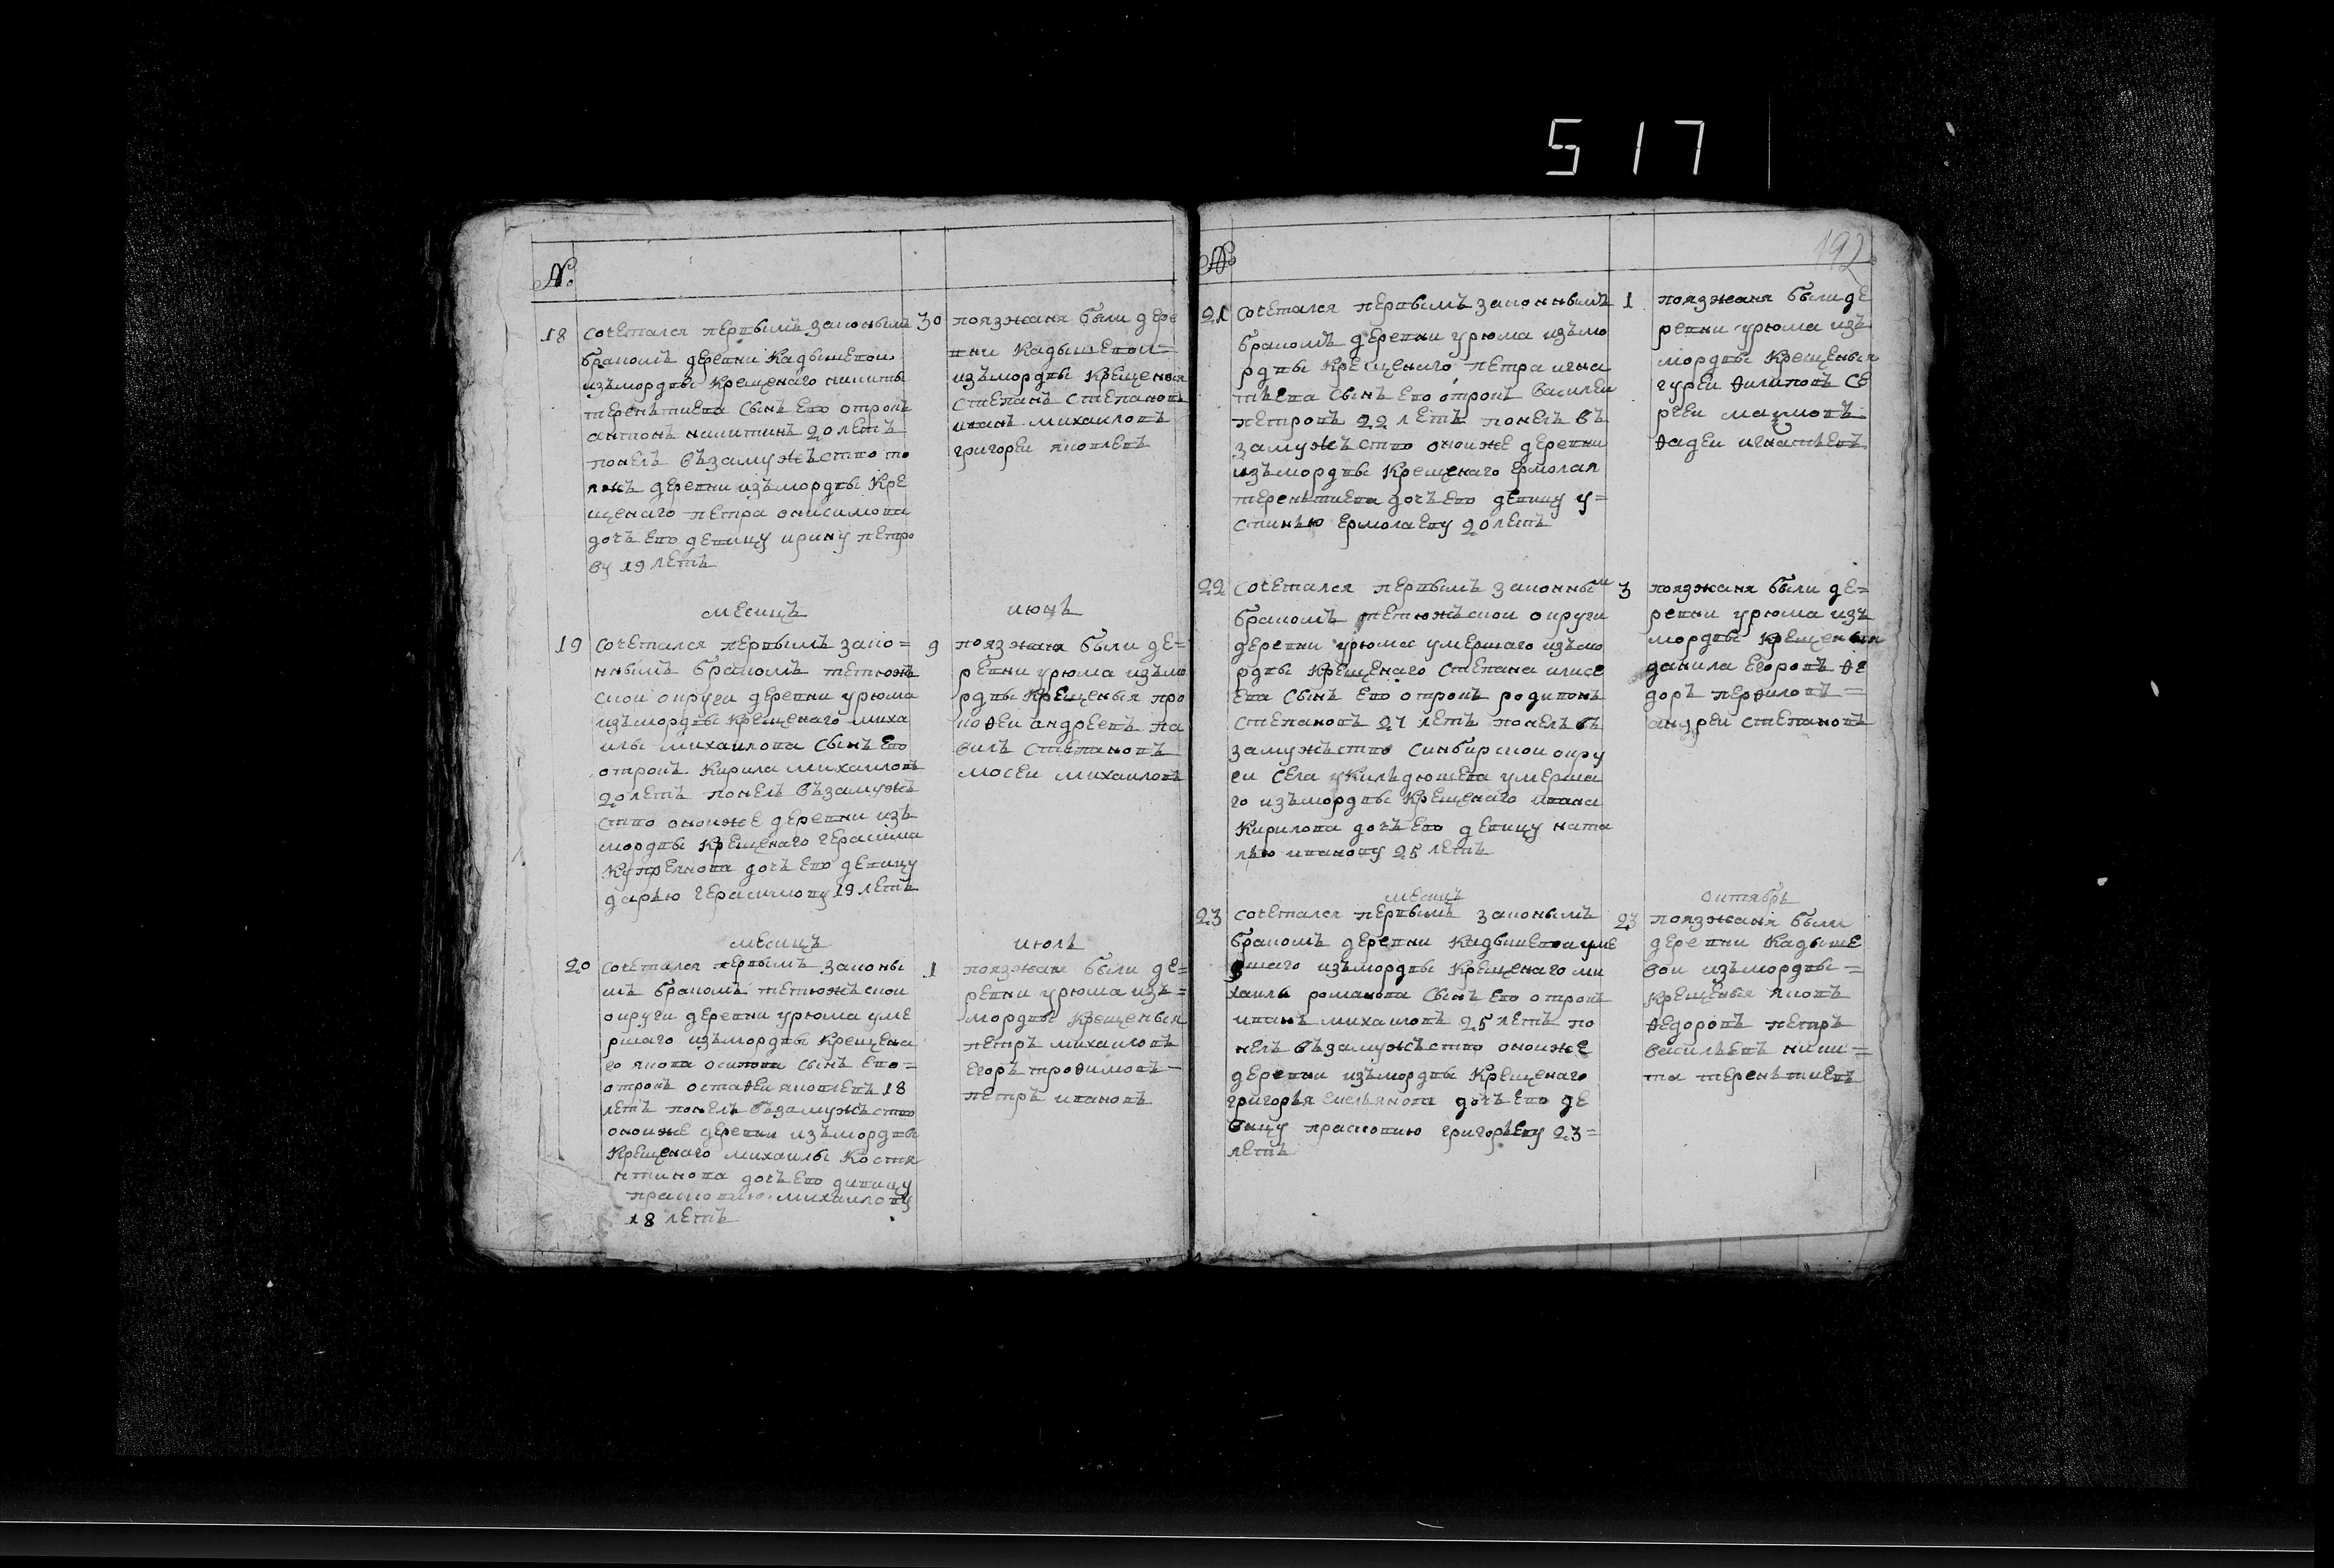 517
№
18 сочетался первымъ законымъ
бракомъ деревни Кадышевои
изъмордвы Крещенаго никиты
терентиева сынъ Ево отрокъ
антонъ никитинъ 20 летъ
понелъ въ замужъство то
яжъ деревни изъмордвы Кре
щенаго петра онисимова
дочъ Ево девицу ирину петро
ву 19 летъ
30 поязжаня были дере
вни Кадышевои=
изъмордвы Крещеныя
Степанъ Степановъ
иванъ михаиловъ
григореи яковлевъ
месицъ июнь
19 сочетался первымъ зако=
ннымъ бракомъ тетюжъ
скои округи деревни урюма
изъмордвы Крещенаго миха
илы михаилова сынъ Ево
отрокъ Кирила михаиловъ
20 летъ понелъ възамужъ
ство оноиже деревни изъ
мордвы Крещенаго герасима
Купреянова дочъ Ево девицу
дарью герасимову 19 летъ
9 поязжаня были де=
ревни урюма изъмо
рдвы Крещеныя про
коѳеи андреевъ па
вилъ Степановъ
мосеи михаиловъ
месицъ июль
20 сочетался первымъ законы
мъ бракомъ тетюжъскои
округи деревни урюма уме
ршаго изъмордвы Крещена
го якова осипова сынъ Ево=
отрокъ остаѳеи яковлевъ 18
летъ понелъ възамужъство
оноиже деревни изъмордвы
Крещенаго михаилы Костя
нтинова дочъ Ево дивицу
прасковию михаилову
18 летъ
1 поязжаня были де=
ревни урюма изъ=
мордвы Крещеныя
петръ михаиловъ
Егоръ троѳимовъ
петръ ивановъ
192
№
21 сочетался первымъ законнымъ
бракомъ деревни урюма изъмо
рдвы Крещенаго петра игна
тъева сынъ Ево отрокъ василеи
петровъ 22 летъ понелъ въ
замужъство оноиже деревни
изъмордвы Крещенаго Ермолая
терентиева дочъ Ево девицу у=
стинью Ермолаеву 20 летъ
1 поязжаня были де
ревни урюма изъ
мордвы Крещеныя
гуреи ѳилиповъ Се
ргеи
ѳадеи игнатъевъ
22 сочетался первымъ законным
бракомъ тетюжъскои округи
деревни урюма умершаго изъмо
рдвы Крещенаго Степана илисе
Ева сынъ Ево отрокъ родивонъ
Степановъ 27 летъ понелъ въ
замужъство Синбирскои окру
ги села умерша
го изъмордвы Крещенаго ивана
Кирилова дочъ Ево девицу ната
лью иванову 25 летъ
3 поязжаня были де=
ревни урюма изъ
мордвы Крещеныя
данила Егоровъ ѳе
доръ перѳиловъ=
андреи Степановъ
месицъ октябръ
23 сочетался первымъ законымъ
бракомъ деревни Кадышева уме
ршаго изъмордвы Крещенаго ми
хаилы романова сынъ Ево отрокъ
иванъ михаиловъ 25 летъ по
нелъ въ замужъство оноиже
деревни изъмордвы Крещенаго
григорья Емельянова дочъ Ево де
вицу прасковию григорьеву 23=
летъ
23 поязжаня были
деревни Кадыше
вои изъмордвы=
Крещеныя яковъ
ѳедоровъ петръ
василъевъ ники=
та терентиевъ